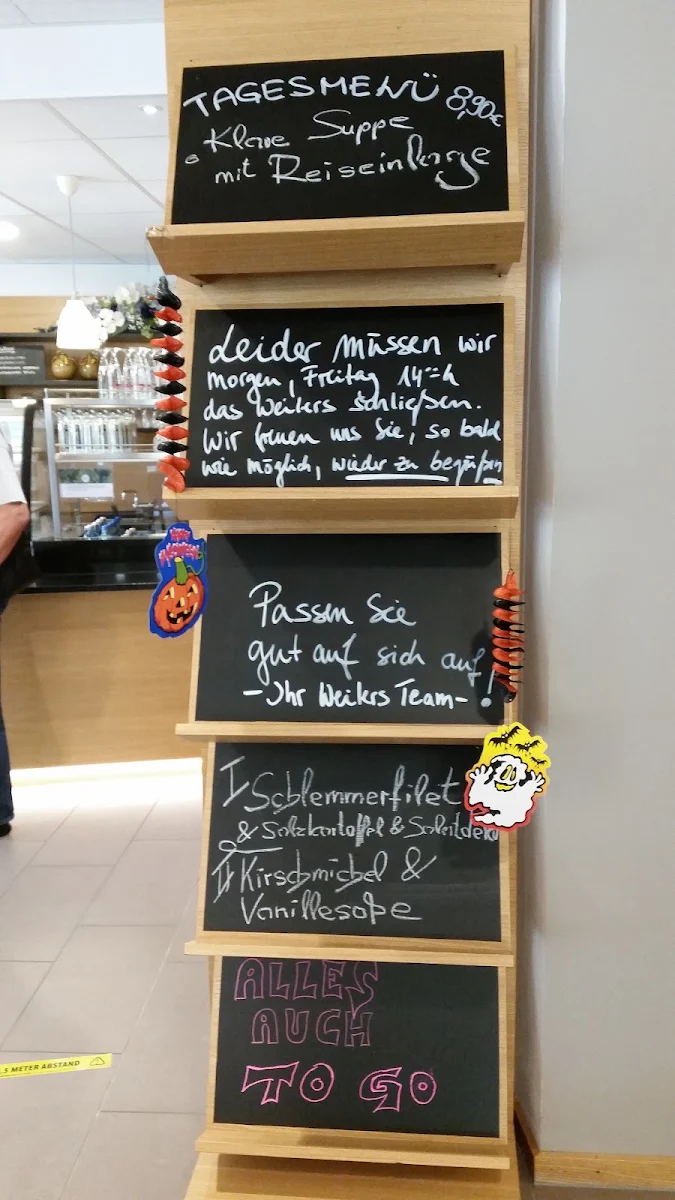 TAGESMENÜ 8,90€
Klare Suppe
mit Reiseinlage
Leider müssen wir
morgen, Freitag 14:00h
das Weikers schließen.
Wir freuen uns Sie, so bald
wie möglich, wieder zu begrüßen
Passen Sie
gut auf sich auf!
-Ihr Weikers Team-
I Schlemmerfilet
& Salzkartoffel & Salatdeko
II Kirschmichel &
Vanillesoße
ALLES
AUCH
TO GO
,5 METER ABSTAND